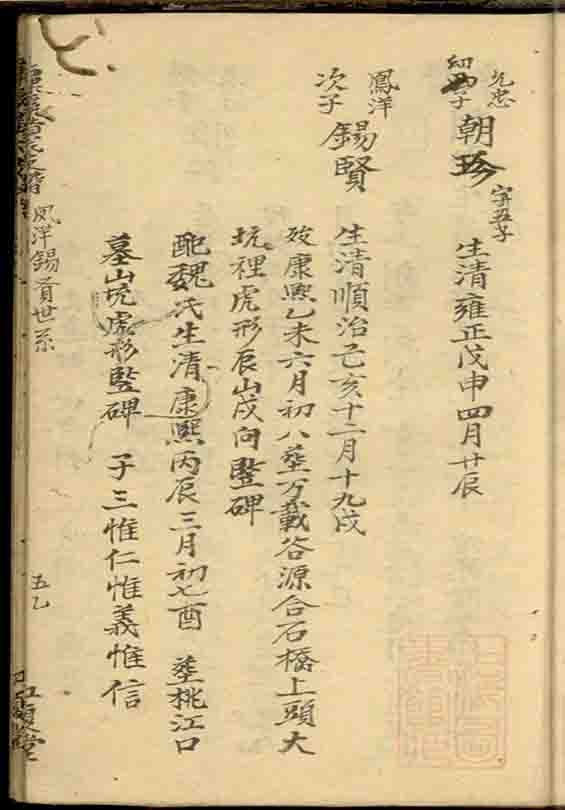 允忠
幼子
朝珍
字玉子
生清雍正戊申四月廿辰
鳳洋
次子
錫賢
生清順治己亥十二月十九戌
歿康熙乙未六月初八塟万載谷源合石橋上頭大
坑裡虎形辰山戌向豎碑
配魏氏生清康熙丙辰三月初七酉 塟桃江口
墓山坑虎形豎碑 子三惟仁惟義惟信
鳳洋錫賢世系
五乙